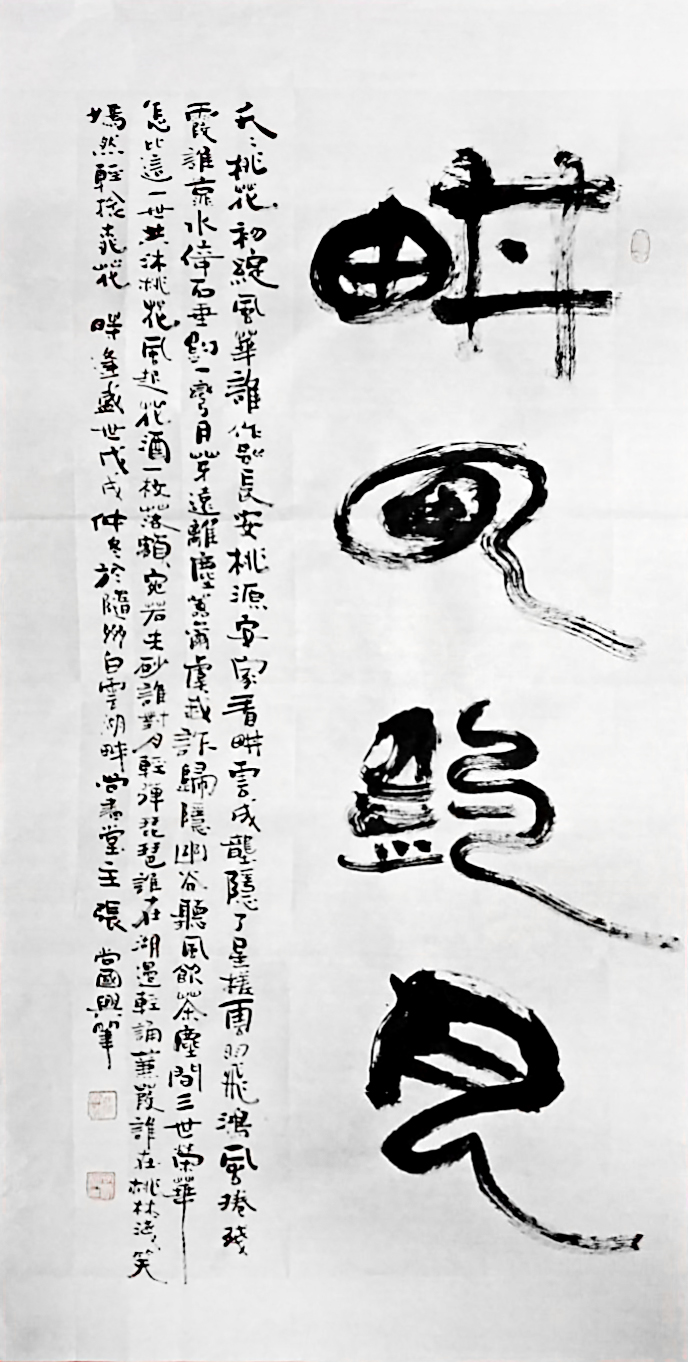 畊云釣月
夭〻桃花初綻風華誰作別長安桃源安家看畊雲成壟隱了星槎團羽飛鴻風捲殘
霞誰靠水倚石垂釣一彎月芽遠離塵囂爾虞我詐歸隱幽谷聽風飲茶塵間三世榮華
怎比這一世共沐桃花風起花酒一枚落額宛若朱砂誰對月輕彈琵琶誰在湖邊輕誦蒹葭誰在桃林淺笑
嫣然輕捻花 時逢盛世戊戌仲冬於隨州白雲湖畔尚書堂主張尚國興筆